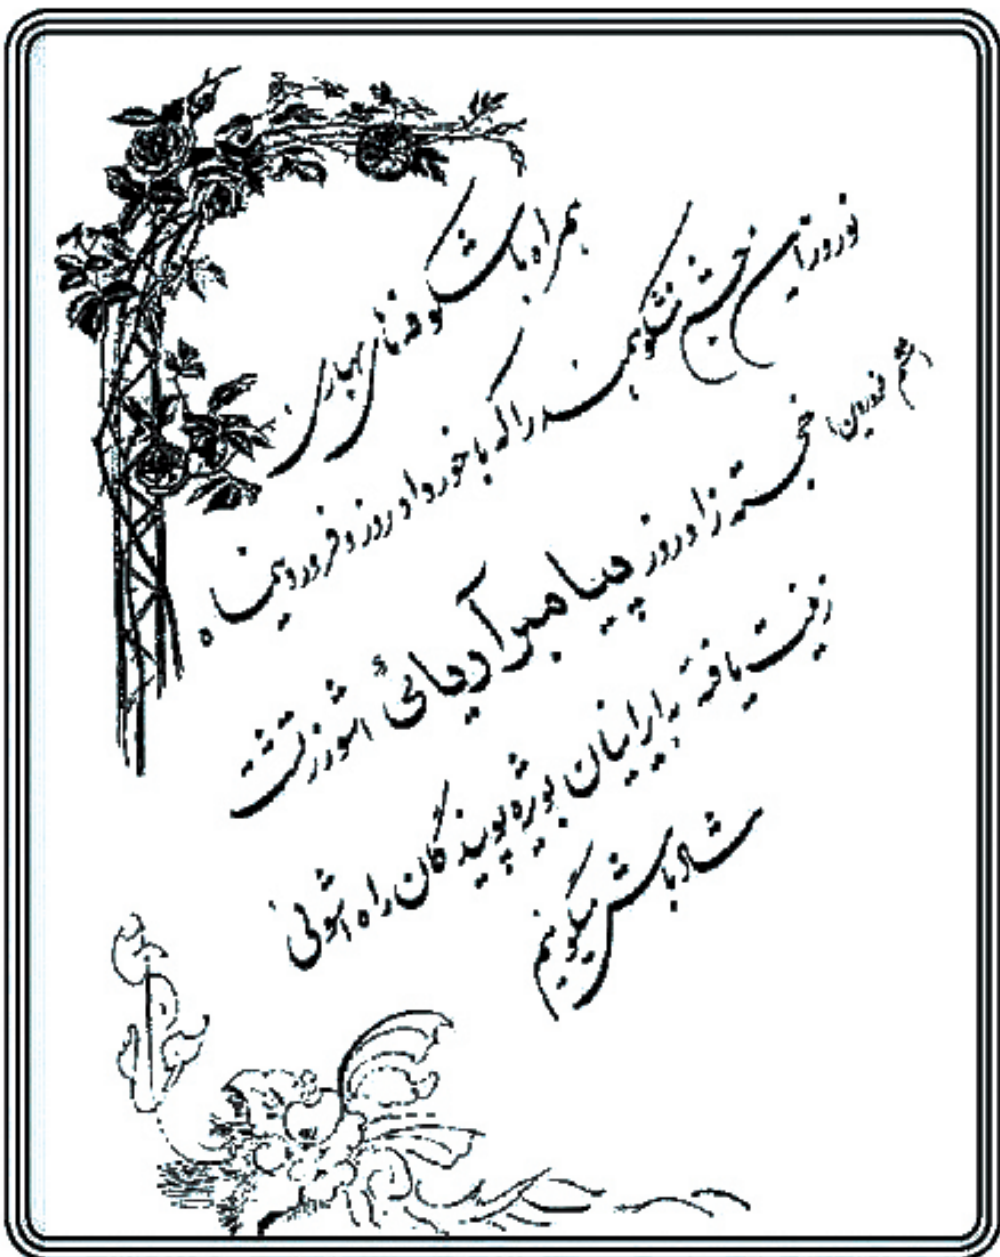 همراه با شکوفه‌های بهاری
نوروز این جشن شکوهمند را که با خورداد روز و فروردینماه
(ششم فروردین) خجسته زادروز پیامبر آریائی اشوزرتشت
زینت یافته بایرانیان بویژه پویندگان راه اشوئی
شادباش میگوئیم